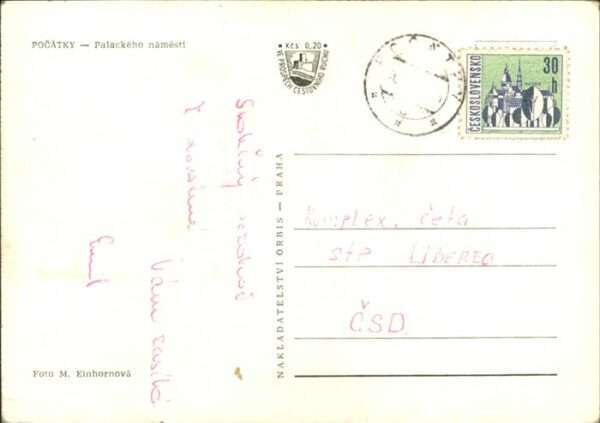 POČÁTKY — Palackého náměstí
• Kčs 0,20 •
VE PROSPĚCH CESTOVNÍHO RUCHU
POČÁTKY
ČESKOSLOVENSKO
30 h
Srdečný pozdrav
z
Vám zasílá
Emil
NAKLADATELSTVÍ ORBIS — PRAHA
Komplex. četa
stř LIBEREC
ČSD
Foto M. Einhornová